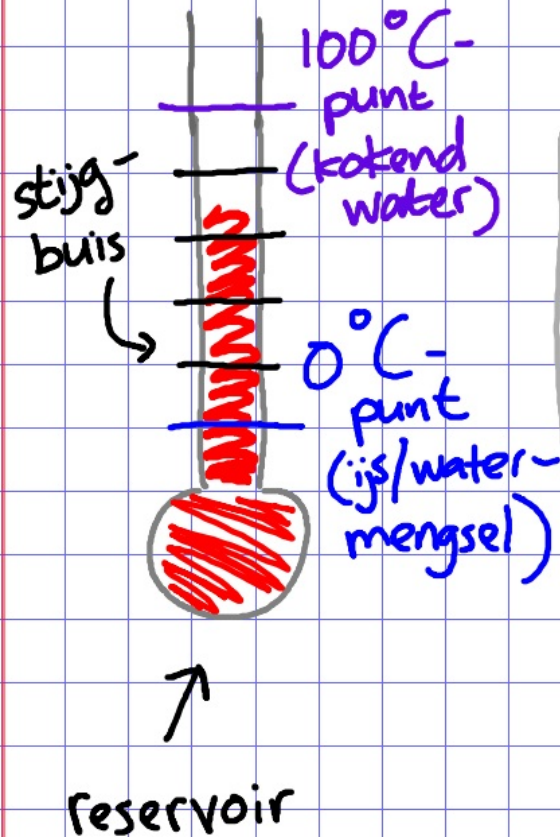 100°C-
punt
(kokend
water)
stijg-
buis
0°C-
punt
(ijs/water-
mengsel)
reservoir